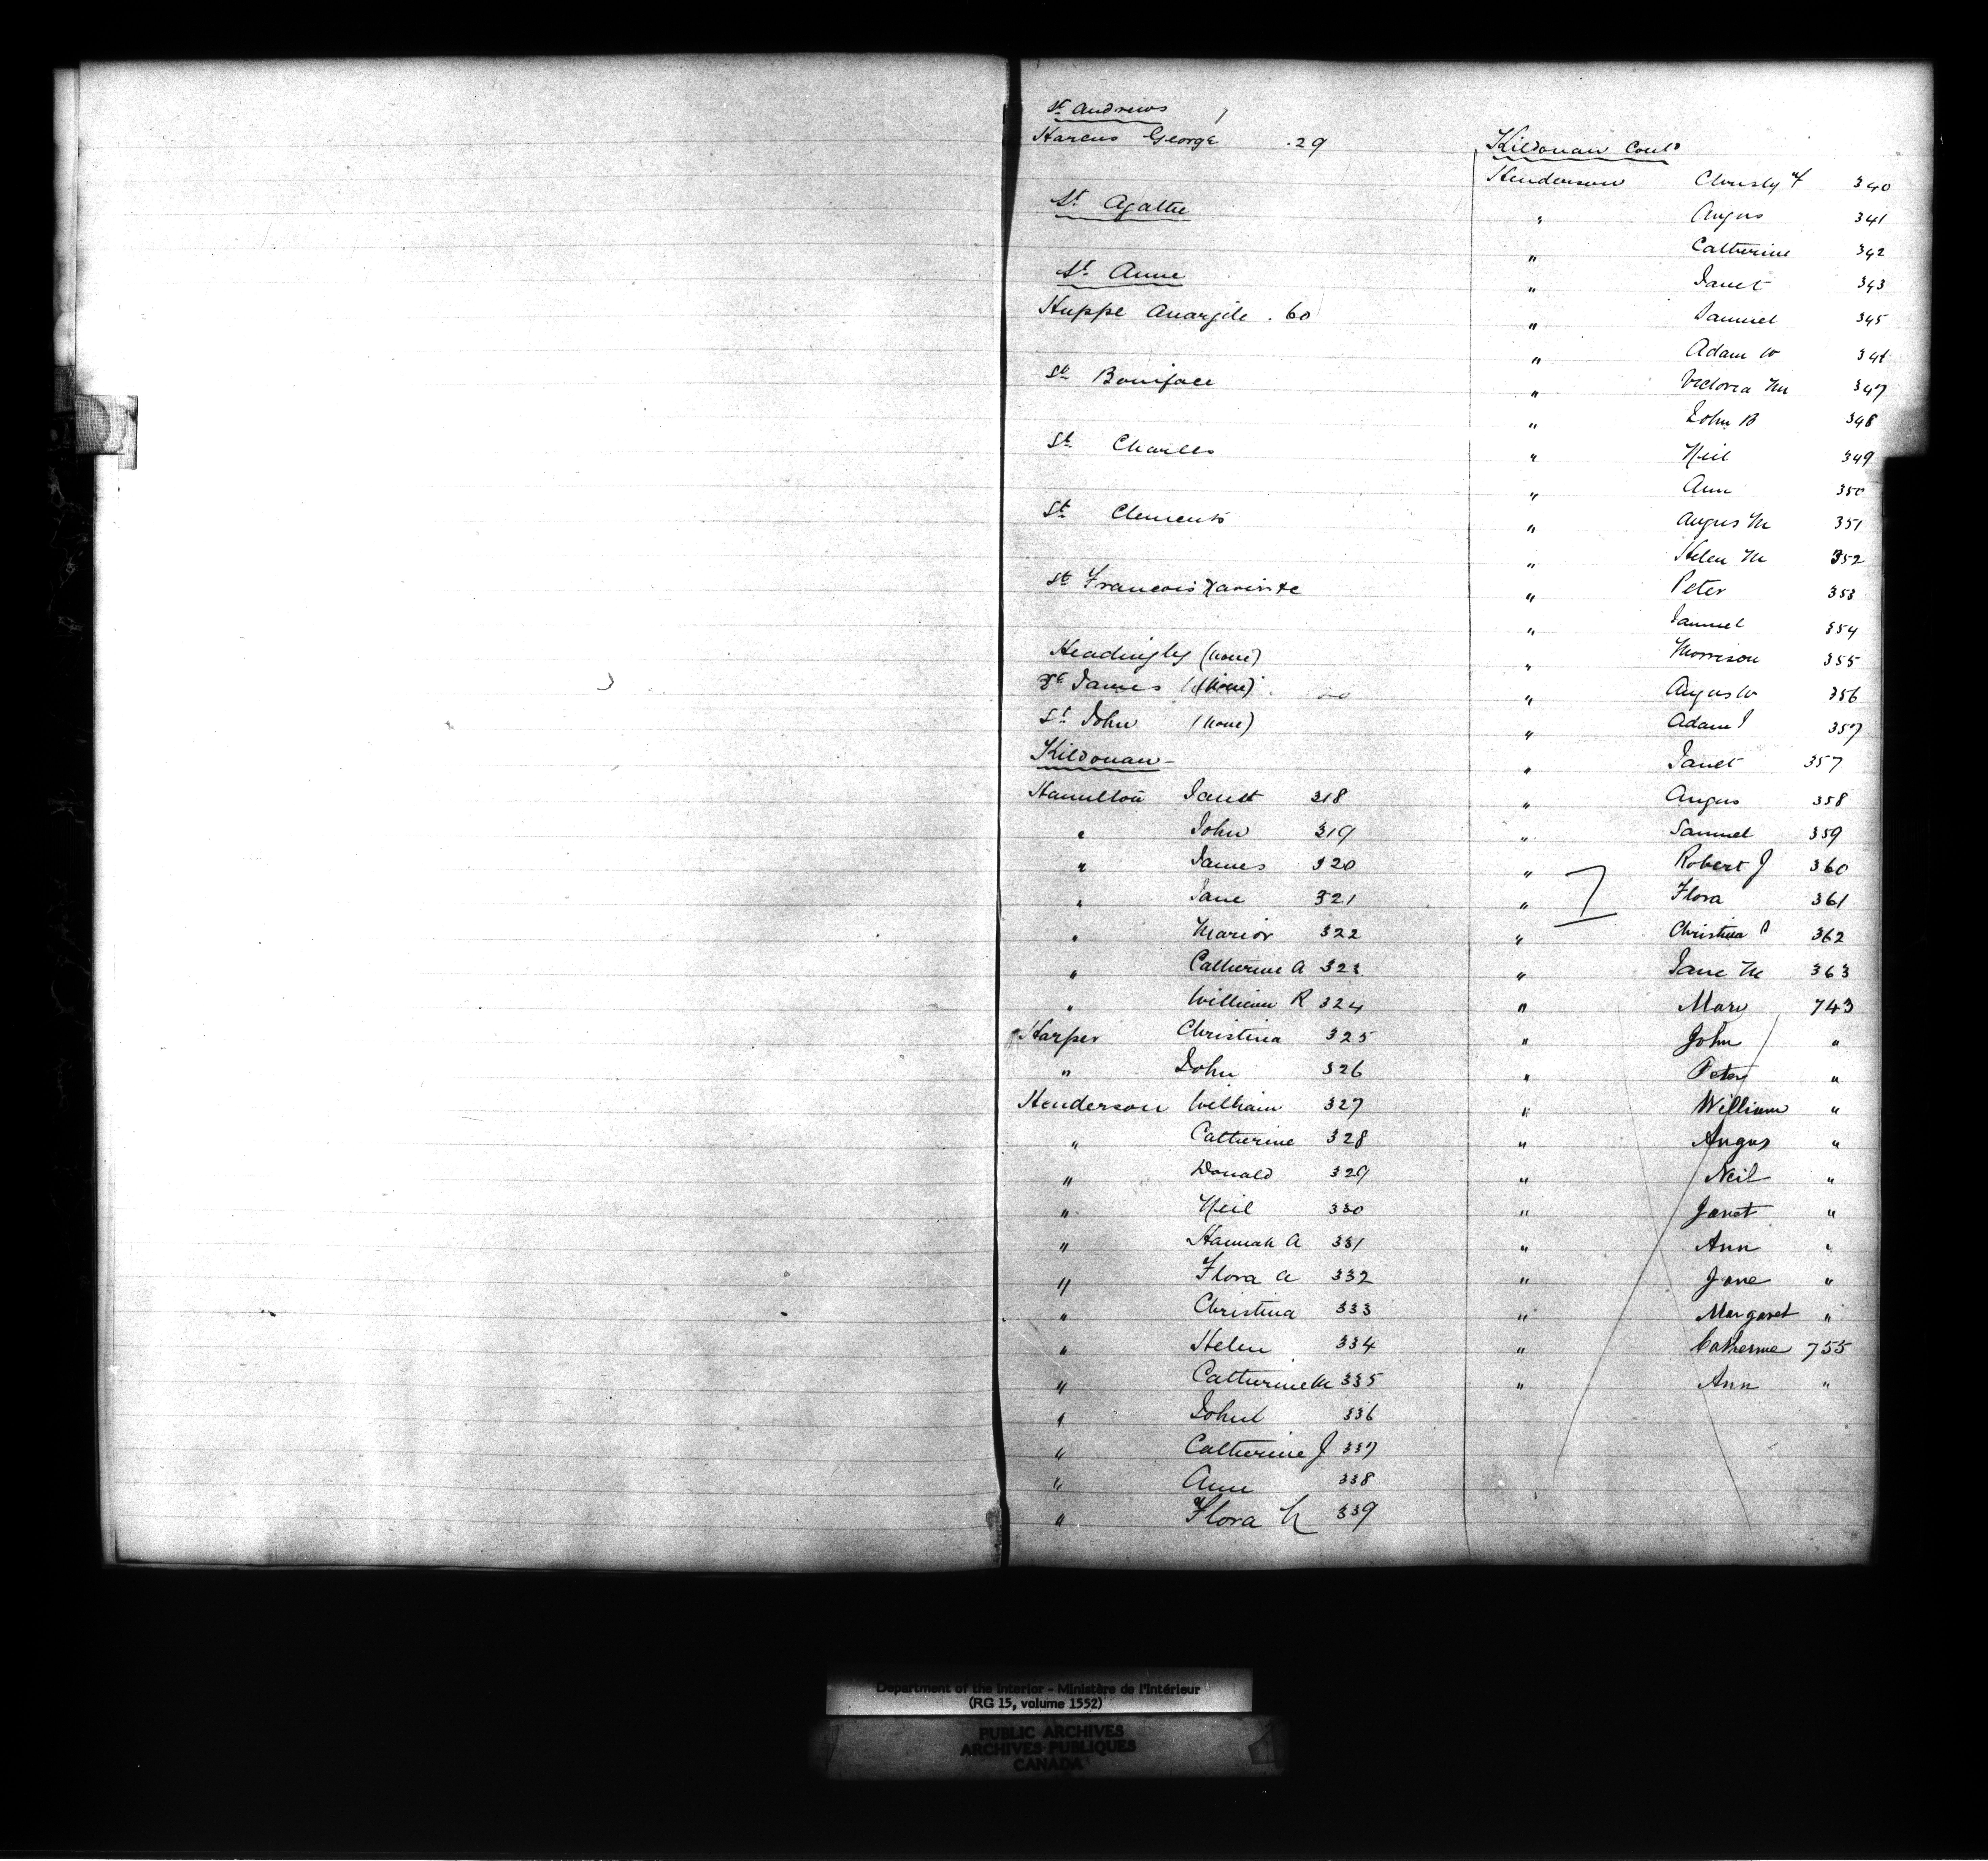 St. Andrews
Harcus George . 29
St. Agathe
St. Anne
Huppe Anargile . 60
St. Boniface
St. Charles
St. Clements
St. Francois
Headingly (none)
St James (none)
St. John (none)
Kildonan -
Hamilton Janett 318
" John 319
" James 320
" Jane 321
" Marior 322
" Catherine A 323
" William R 324
Harper Christina 325
" John 326
Henderson William 327
" Catherine 328
" Donald 329
" Neil 330
" Hannah A 331
" Flora A 332
" Christina 333
" Helen 334
" Catherine M 335
" John 336
" Catherine J 337
" Ann 338
" Flora 339
Kildonan Cont'd
Henderson Christy 340
" Angus 341
" Catherine 342
" Janet 343
" Samuel 345
" Adam W 346
" Victoria M 347
" John B 348
" Neil 349
" Ann 350
" Angus M 351
" Helen M 352
" Peter 353
" Samuel 354
" Morrison 355
" Angus W 356
" Adam J 357
" Janet 357
" Angus 358
" Samuel 359
" Robert J 360
" Flora 361
" Christina 362
" Jane M 363
" Mary 743
" John "
" Peter "
" William "
" Angus "
" Neil "
" Janet "
" Ann "
" Jane "
" Margaret "
" Catherine 755
" Ann "
Department of the Interior - Ministère de l'Intérieur
(RG 15, volume 1552)
PUBLIC ARCHIVES
ARCHIVES PUBLIQUES
CANADA